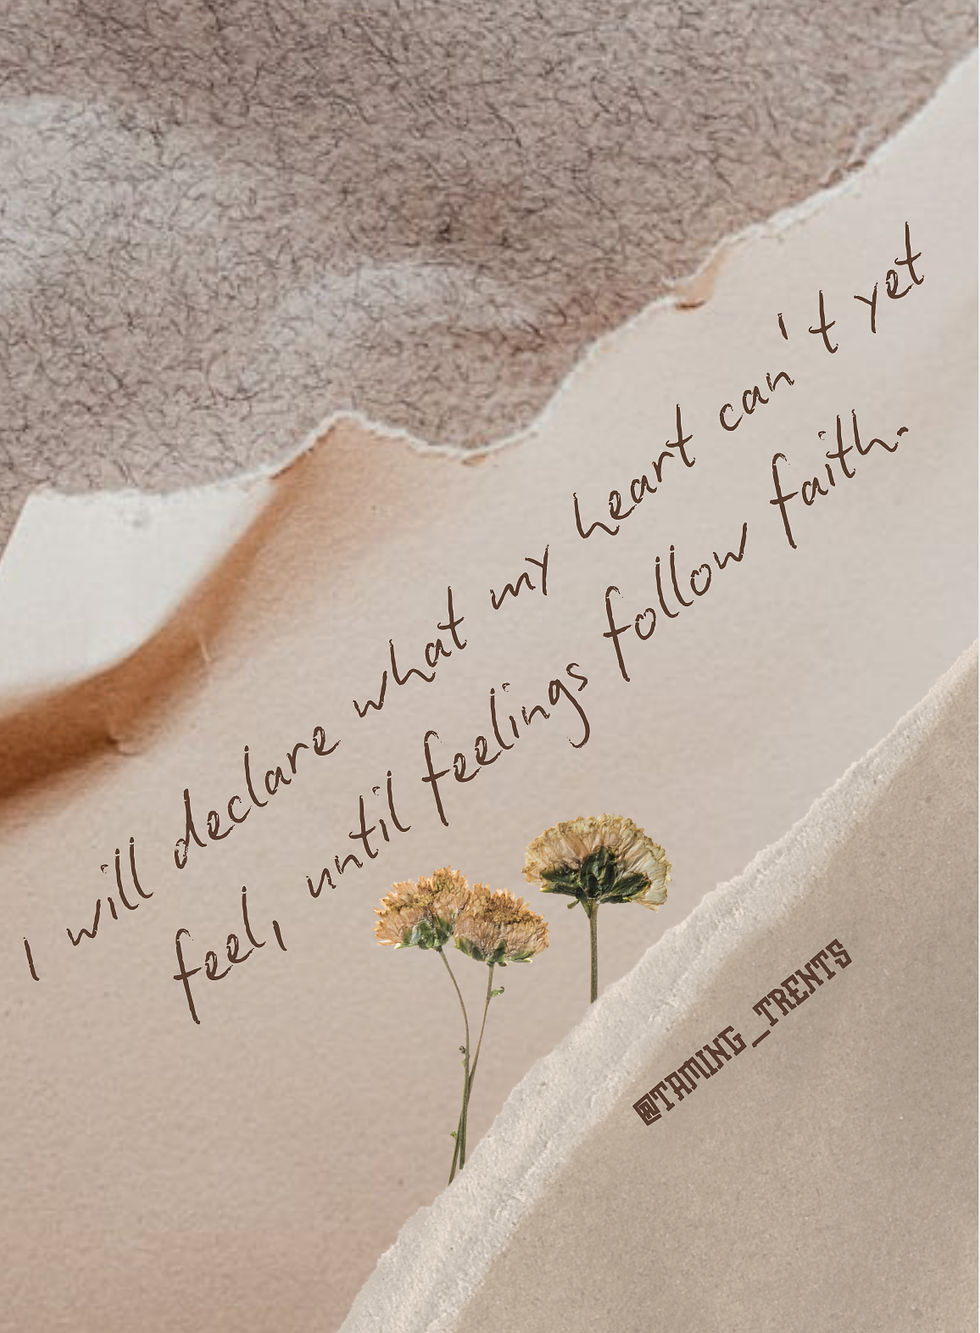 I will declare what my heart can't yet
feel, until feelings follow faith.
@TAMING_TRENTS